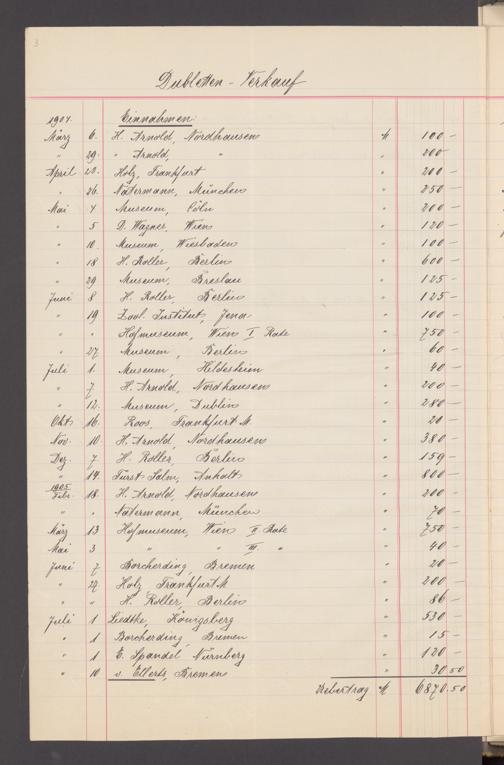 3
Dubletten-Verkauf
1904. Einnahmen.
März 6. H. Arnold, Nordhausen M 100 -
" 29. " Arnold, " " 200 -
April 22. Holz, Frankfurt " 200 -
" 26. Natermann, München " 250 -
Mai 4 Museum, Cöln " 200 -
" 5 D. Wagner, Wien " 120 -
" 10 Museum, Wiesbaden " 100 -
" 18 H. Rolle, Berlin " 600 -
" 29 Museum, Breslau " 125 -
Juni 8 H. Rolle, Berlin " 125 -
" 19 Zool. Institut, Jena " 100 -
" " Hofmuseum, Wien I Rate " 750 -
" 27 Museum, Berlin " 60 -
Juli 1. Museum, Hildesheim " 40 -
" 7 H. Arnold, Nordhausen " 200 -
" 12. Museum, Dublin " 280 -
Okt. 16. Roos, Frankfurt M " 20 -
Nov. 10 H. Arnold, Nordhausen " 380 -
Dez. 7 H. Rolle, Berlin " 159 -
" 14 Fürst Salm, Anholt " 800 -
1905 Febr. 18. H. Arnold, Nordhausen " 200 -
" " Natermann, München " 70 -
März 13 Hofmuseum, Wien II Rate " 750 -
Mai 3 " " III. " " 40 -
Juni 7 Borcherding, Bremen " 20 -
" 22 Holz Frankfurt M " 200 -
" " H. Rolle, Berlin " 86 -
Juli 1 Liedtke, Königsberg " 530 -
" 1 Borcherding, Bremen " 15 -
" 1 E. Spandel Nürnberg " 120 -
" 10 v. Ellerts, Bremen " 30.50
Uebertrag M 6870.50